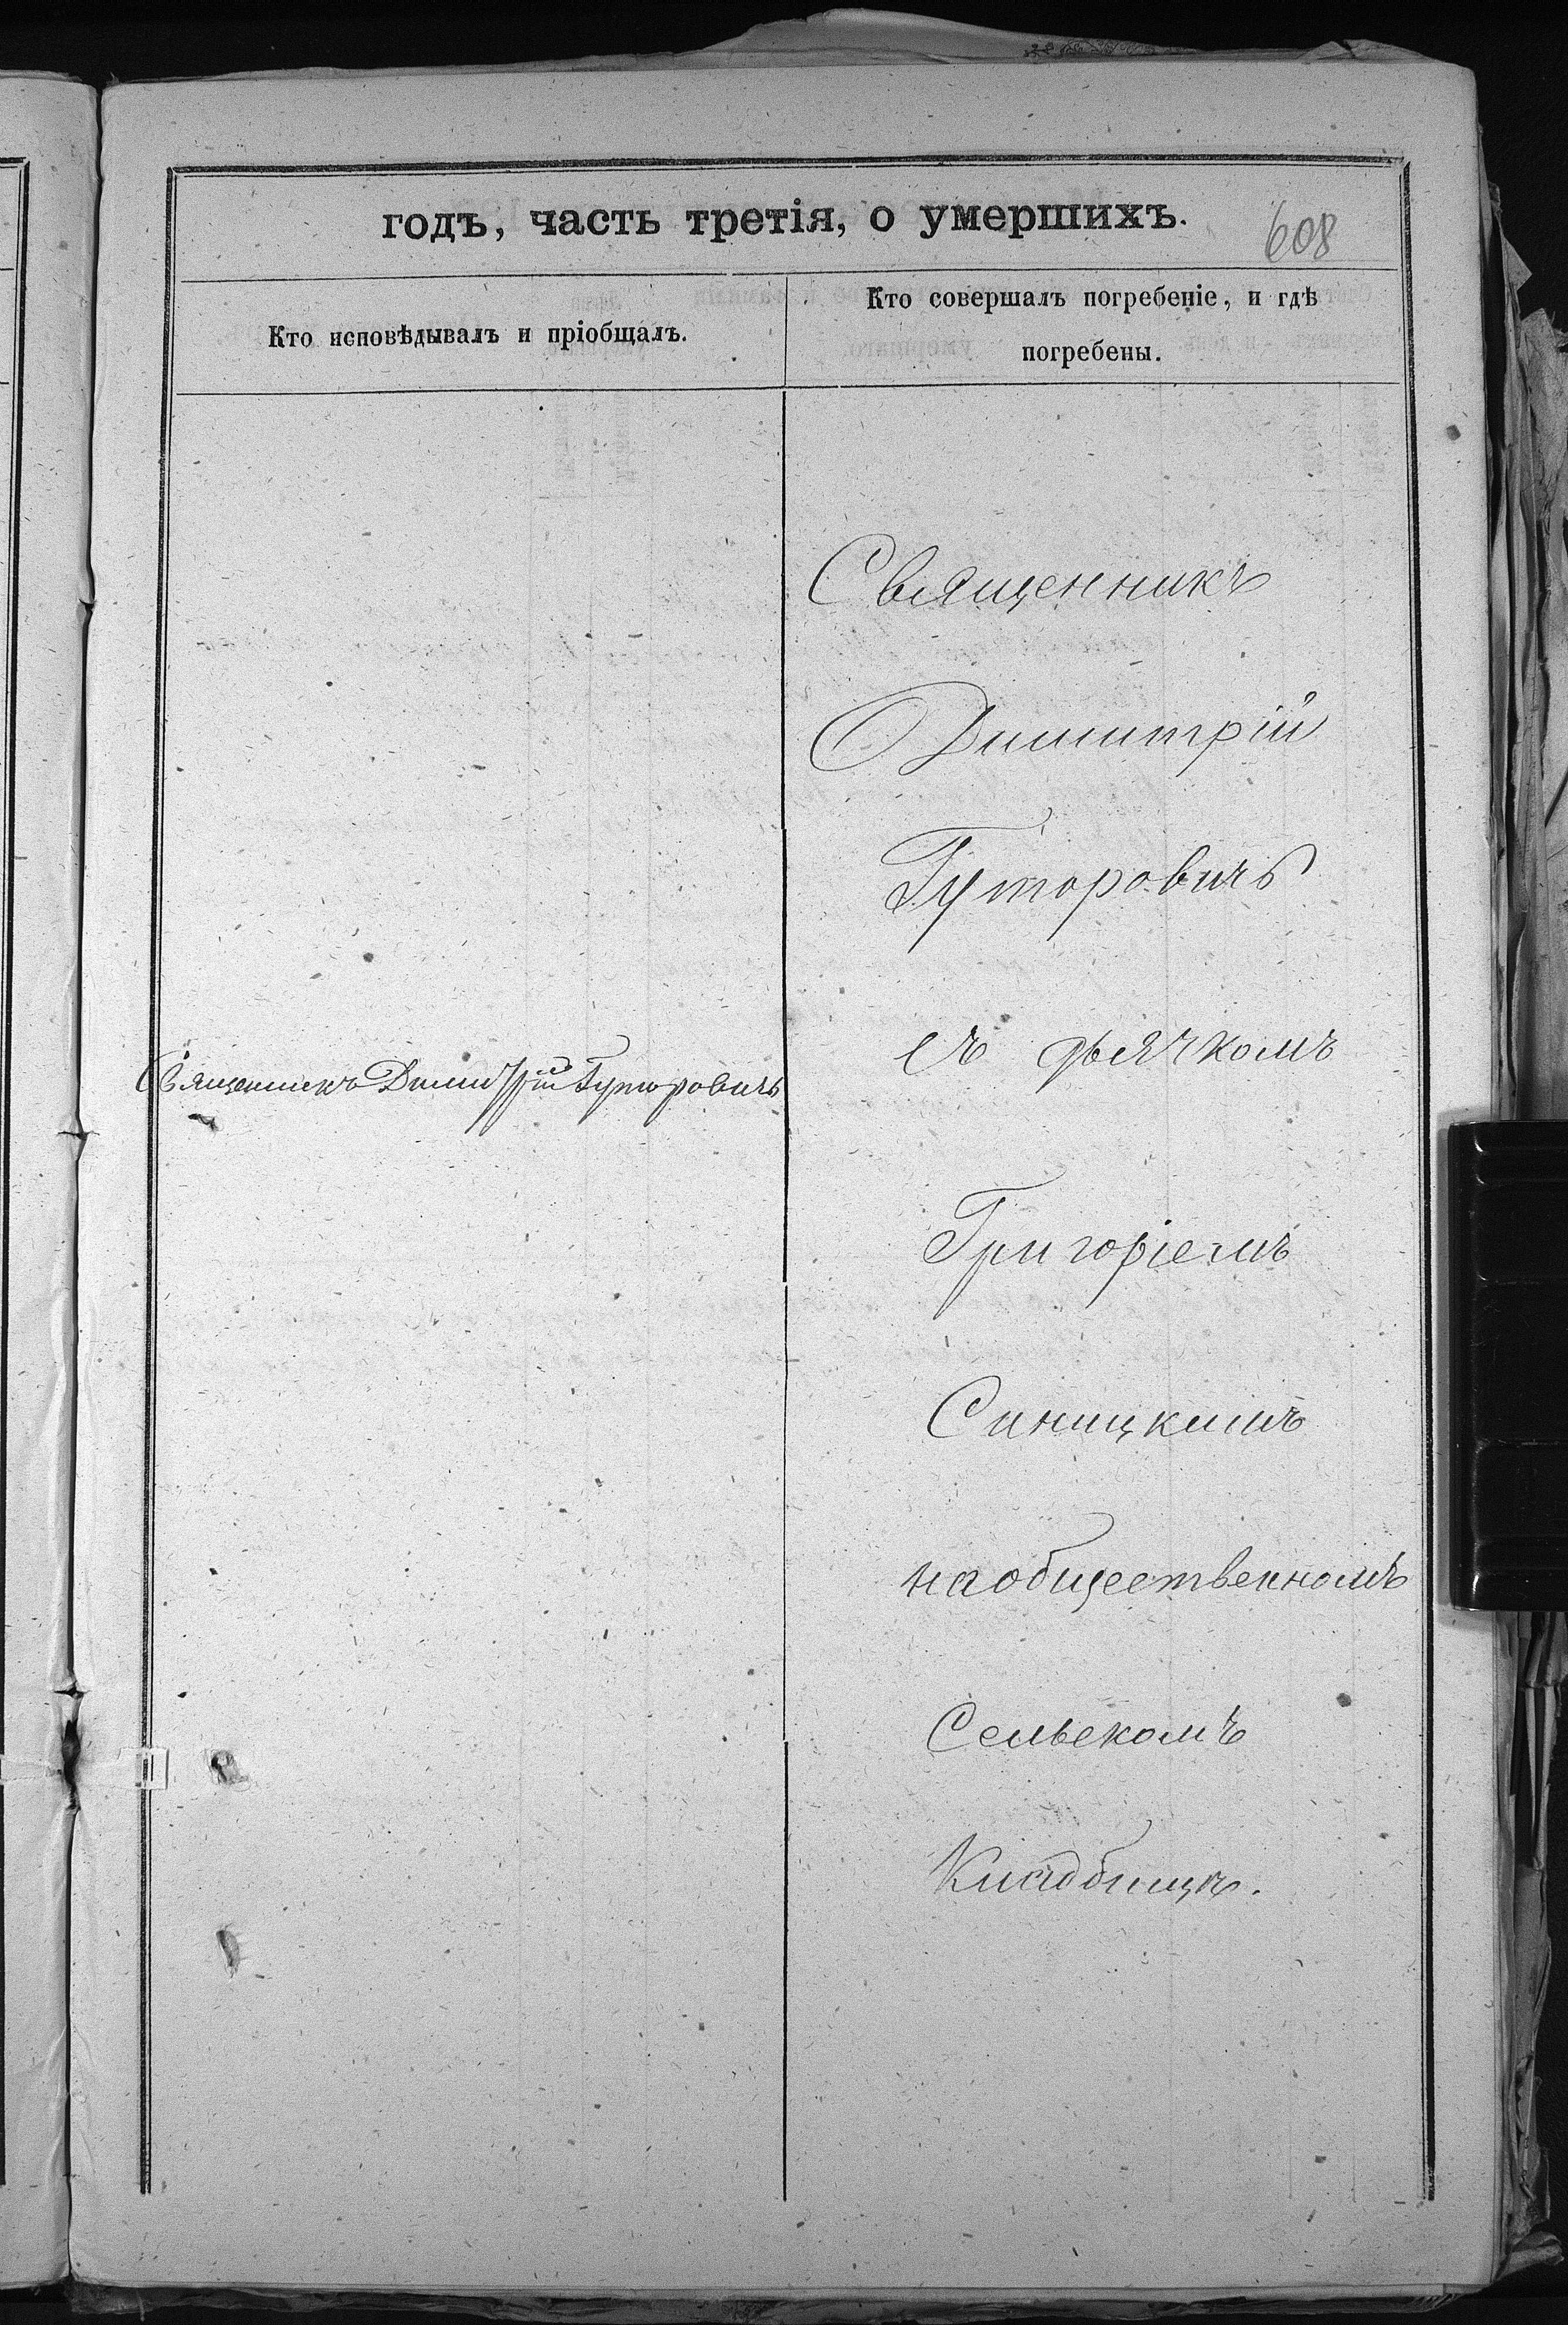 годъ, часть третія, о умершихъ.
608
Кто исповѣдывалъ и пріобщалъ.
Кто совершалъ погребеніе, и гдѣ
погребены.
Священникъ
Димитрій
Гуторовичъ
съ дьячкомъ
Священникъ Димитрій Гуторовичъ
Григоріемъ
Синицкимъ
на общественномъ
Сельскомъ
Кладбищѣ.